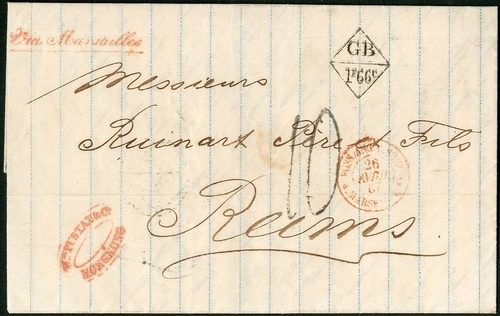 Via Marseilles
GB
1F66c
Messieurs
Ruinart Père et Fils
Reims
10
26
AVRIL
MARSEILLE
Wm PUSTAU & Co
HONGKONG